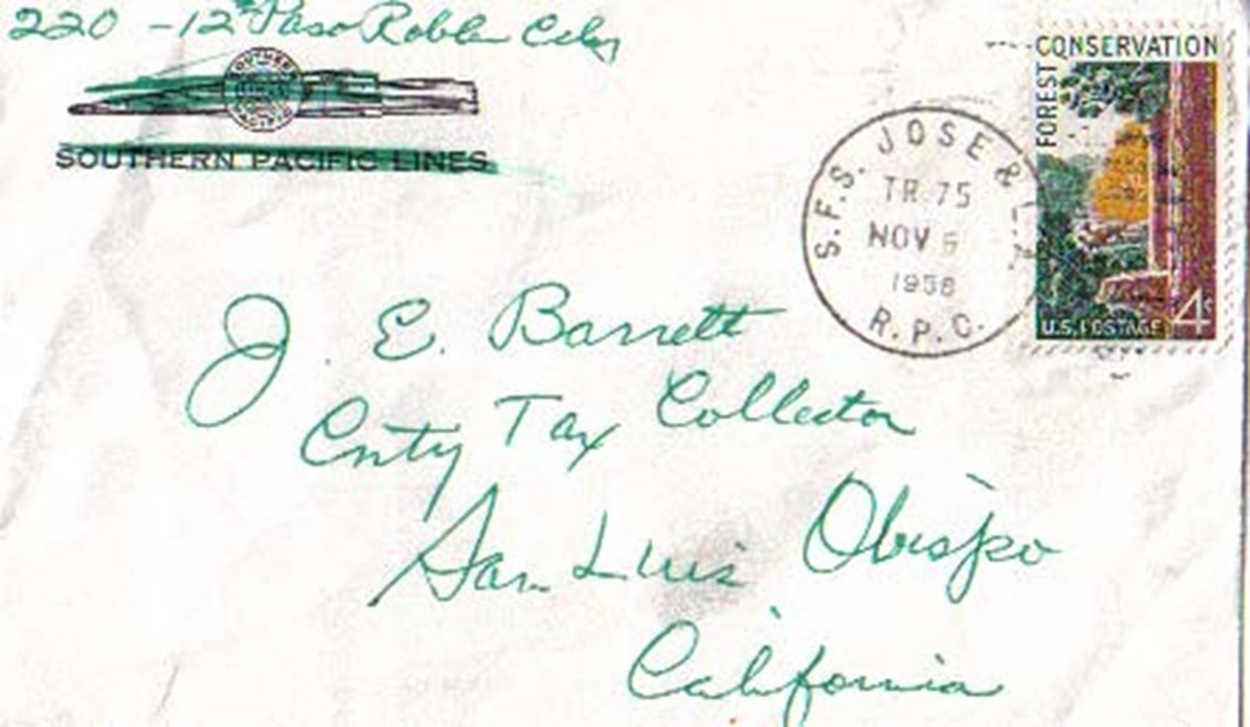 220 - 12th Paso Robles Calif
SOUTHERN PACIFIC
SOUTHERN PACIFIC LINES
CONSERVATION
FOREST
U.S. POSTAGE 4¢
S.F.S. JOSE & L.A.
TR. 75
NOV 5
1958
R.P.O.
J. E. Barrett
Cnty Tax Collector
San Luis Obispo
California